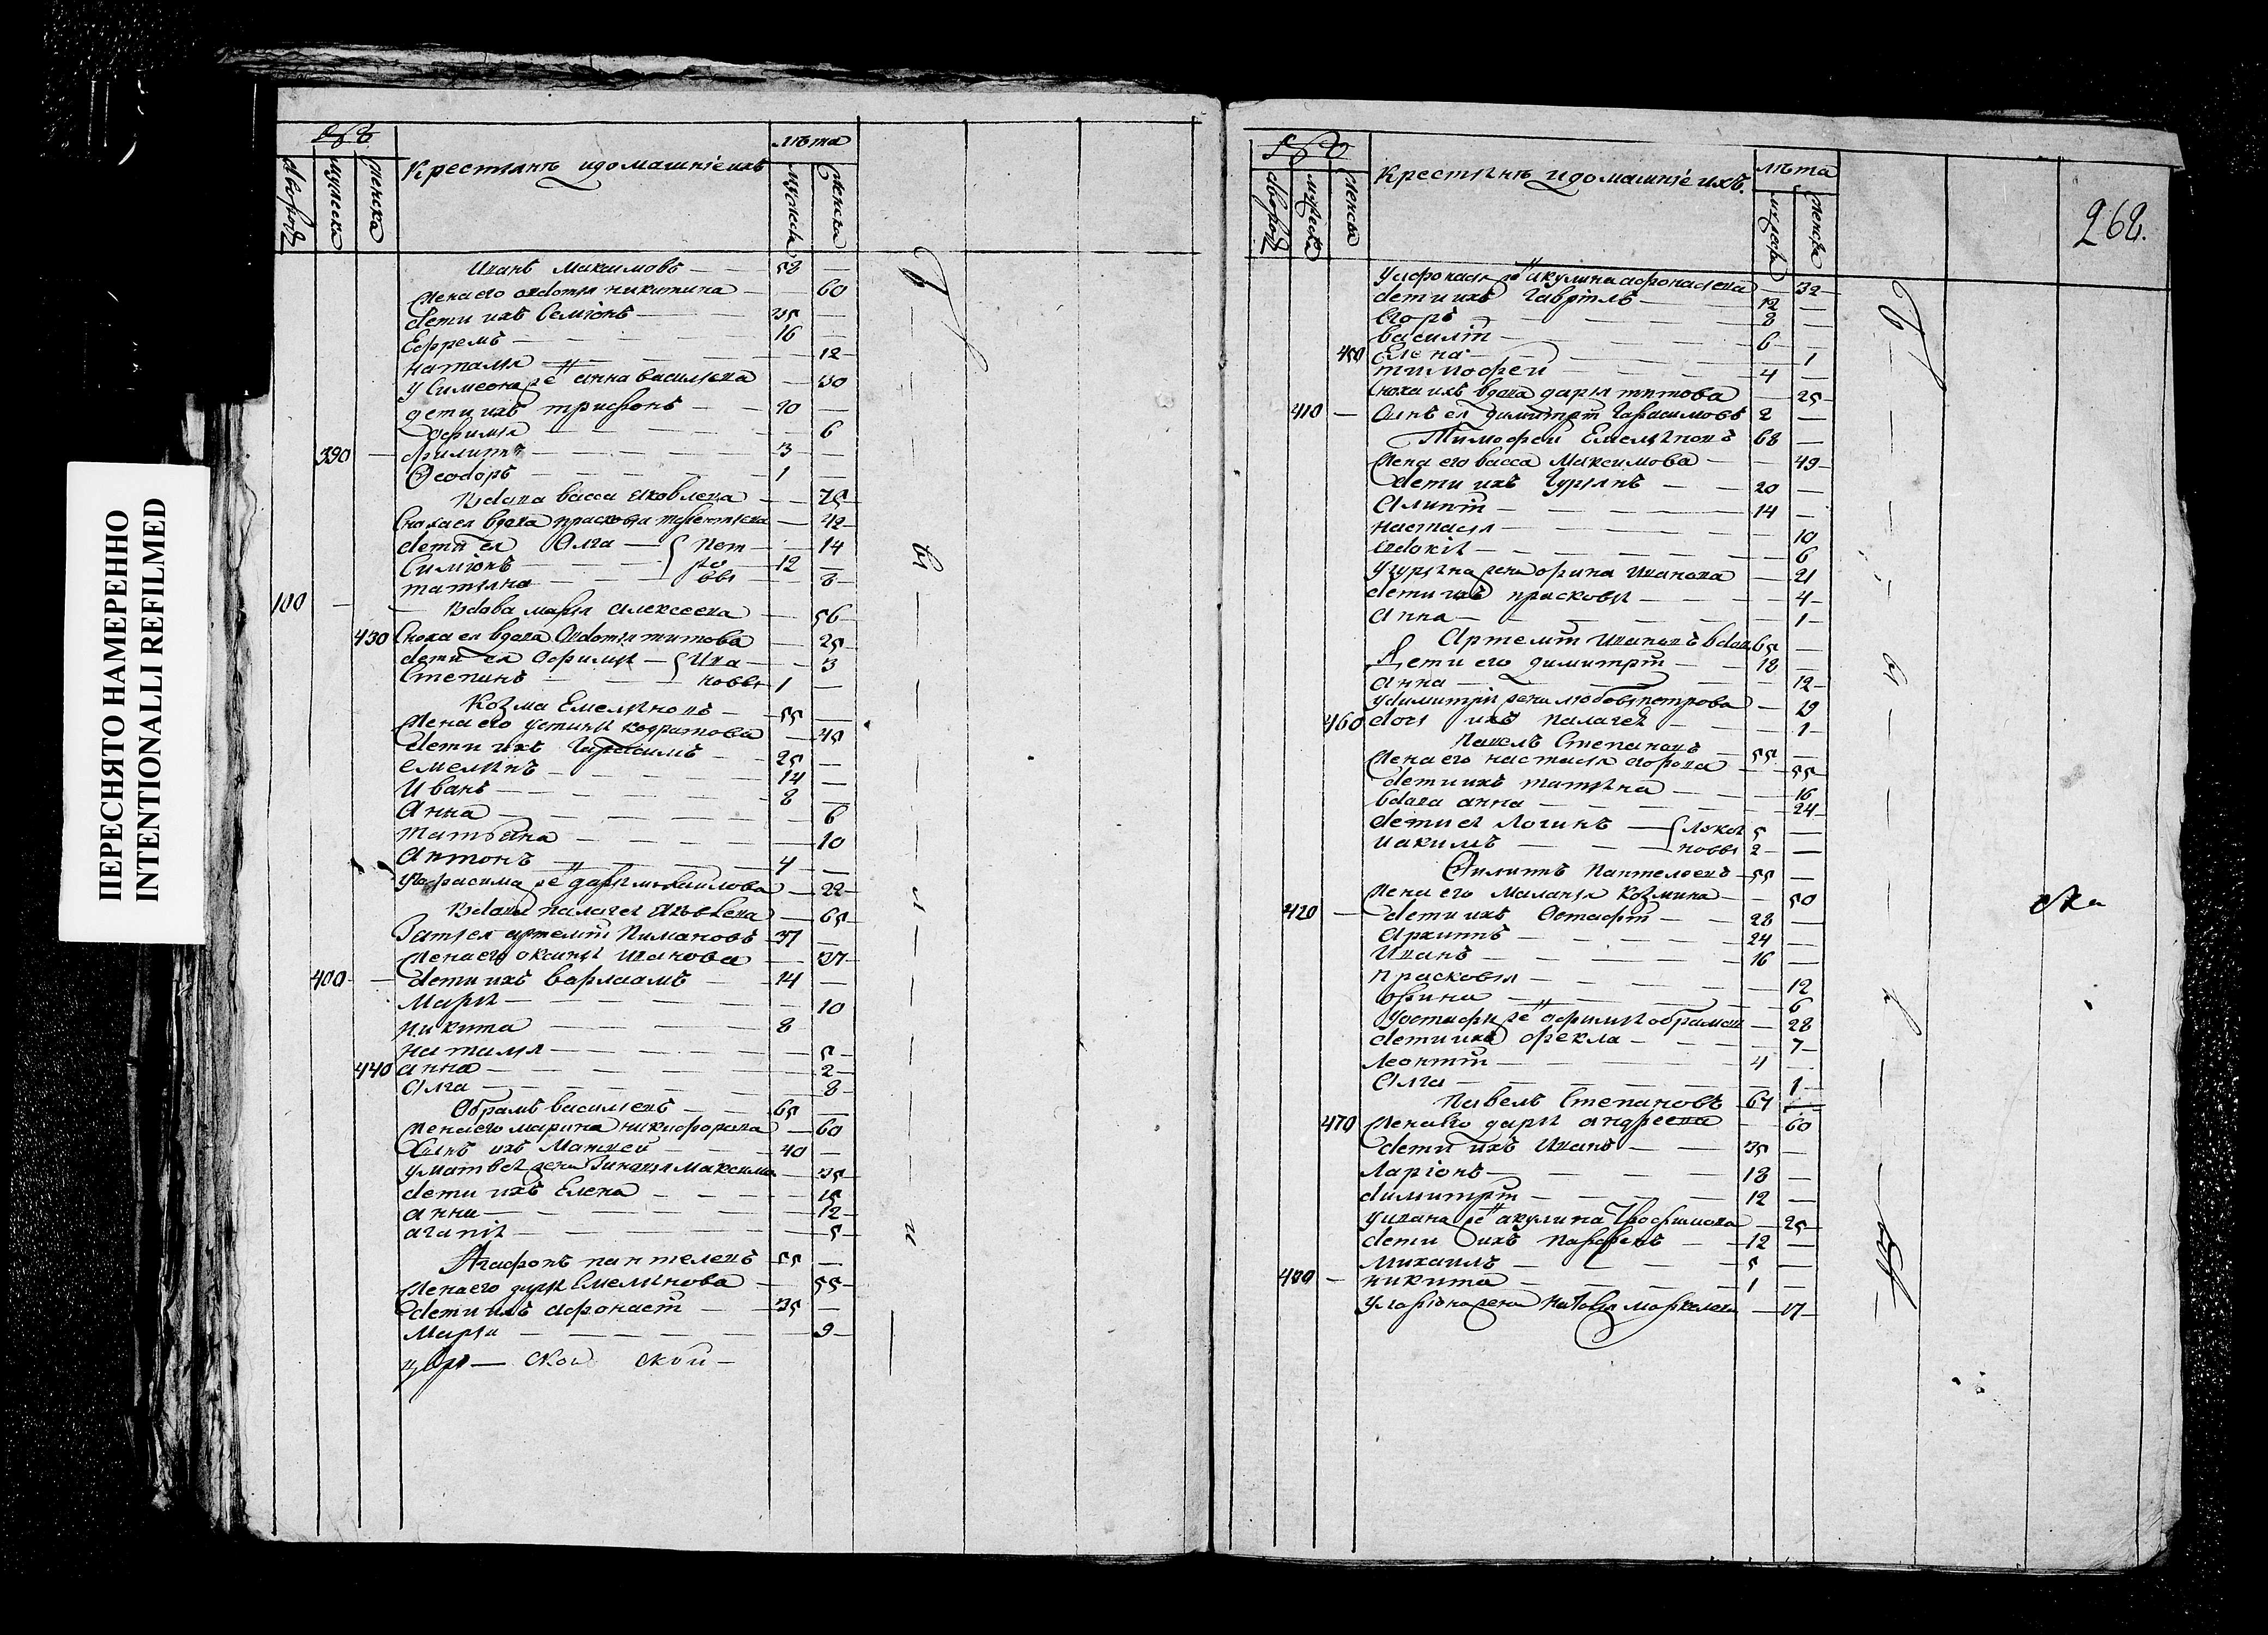 ПЕРЕСНЯТО НАМЕРЕННО
INTENTIONALLI REFILMED
лѣта
Крестянъ идомашнiе ихъ
дворовъ мужеска женска
мужеска женска
Иванъ Максимовъ — 58
жена его овдотья никитина — 60
дети ихъ Семiонъ — 35
Ефремъ — 16
наталья — 12
у Симеона же" анна Василева — 30
дети ихъ трифонъ — 10
офимья — 6
390 — филипъ — 3
Ѳеодоръ — 1
Вдова васса яковлева — 75
Сноха ея вдова прасковя терентиева — 42
дети ея Олга — пет — 14
Симiонъ — ро — 12
татьяна — вы — 8
100 — Вдова марья алексеева — 56
430 Сноха ея вдова Овдотья титова — 25
дети ея Офимия — Ива — 3
Степанъ — новы 1
Козма Емельяновъ — 55
жена его устинья кодратова — 45
дети ихъ Гарасимъ — 25
емельянъ — 14
Иванъ — 8
Анна — 6
татьяна — 10
Антонъ — 4
у Гарасима же" дарья михаилова — 22
Вдова палагея Яковлева — 65
Зятьея артемiй Пимановъ 37
жена его оксинья иванова — 37
400 — дети ихъ варлаамъ — 14
Марья — 10
никита — 8
наталья — 5
440 анна — 2
Олга — 8
Обрамъ василиевъ — 65
жена его марина никифорова — 60
Сынъ ихъ Матвей — 40
у матвея жена Зиновия Максима — 35
дети ихъ Елена — 15
анна — 12
агапия — 5
Агафонъ пантелевъ 55
жена его дарья Емельянова — 55
дети ихъ афонасей — 35
Марья — 9
цер — ской ской —
262.
лѣта
Крестянъ идомашнiе ихъ.
дворовъ мужеска женска
мужеска женска
у афонасья же" акулина афонасева — 32
дети ихъ Гаврiлъ — 12
Егоръ — 8
василiй — 6
450 Елена — 1
тимофеи — 4
Сноха ихъ вдова дарья титова — 25
410 — Сынъ ея димитрiй Гарасимовъ 2
Тимофеи Емельяновъ 68
жена его васса Максимова — 49
дети ихъ Гурьянъ — 20
Алипiй — 14
настасья — 10
Овдокия — 6
у гурьяна жена орина Иванова — 21
дети ихъ прасковья — 4
Анна — 1
Артемiй Ивановъ вдовъ 65
Дети его димитрiй — 18
Анна — 12
у димитрiя жена любовь петрова — 19
460 дочь ихъ палагея — 1
Павелъ Степановъ — 55
жена его настасья — 55
дети ихъ татьяна — 16
вдова анна — 24
дети ея Логинъ — 5
иакимъ — новы 2
Филипъ Пантелеевъ — 55
жена его маланья Козмина — 50
420 — дети ихъ Остафiй — 28
Архипъ — 24
Иванъ — 16
прасковья — 12
Орина — 6
у остафья же" офимья обрамова — 28
дети ихъ фекла — 7
леонтiй — 4
Олга — 1
Павелъ Степановъ 67
470 жена его дарья андреева — 60
дети ихъ Иванъ — 35
Ларiонъ — 18
димитрiй — 12
у ивана же" акулина Трофимова — 25
дети ихъ парфенъ — 12
михаилъ — 5
никита — 1
у ларiона жена Наталья маркелова — 17